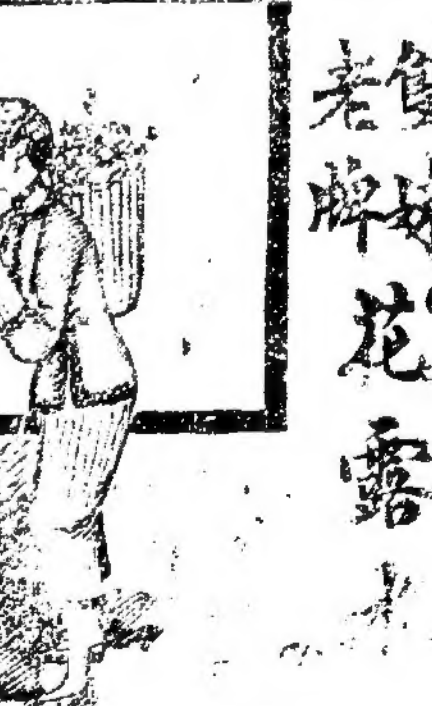 老牌花露水